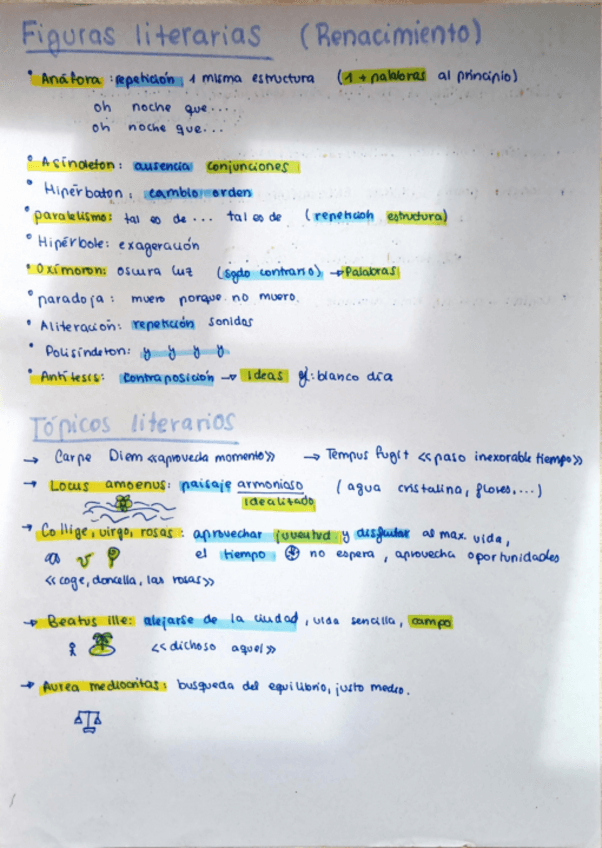 Figuras literarias (Renacimiento)
• Anáfora: repetición 1 misma estructura (1 + palabras al principio)
oh noche que...
oh noche que...
• Asíndeton: ausencia conjunciones
• Hipérbaton: cambio orden
• paralelismo: tal es de ... tal es de (repetición estructura)
• Hipérbole: exageración
• Oxímoron: oscura luz (sgdo contrario) → Palabras
• paradoja: muero porque no muero.
• Aliteración: repetición sonidos
• Polisíndeton: y y y y
• Antítesis: contraposición → Ideas ej: blanco día
Tópicos literarios
→ Carpe Diem «aprovecha momento» → Tempus fugit «paso inexorable tiempo»
→ Locus amoenus: paisaje armonioso (agua cristalina, flores, ...)
idealizado
→ Collige, virgo, rosas: aprovechar juventud y disfrutar al max. vida,
el tiempo no espera, aprovecha oportunidades
«coge, doncella, las rosas»
→ Beatus ille: alejarse de la ciudad, vida sencilla, campo
«dichoso aquel»
→ Aurea mediocritas: busqueda del equilibrio, justo medio.